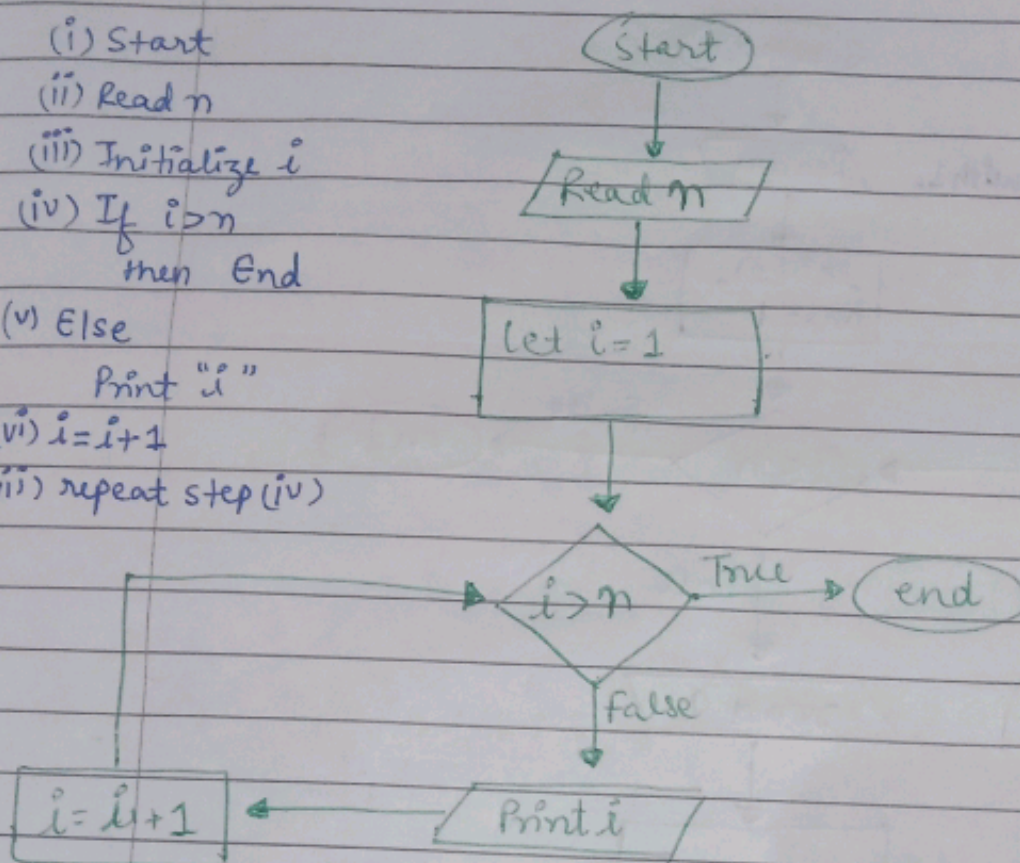 (i) Start
(ii) Read n
(iii) Initialize i
(iv) If i>n
then End
(v) Else
Print "i"
vi) i=i+1
ii) repeat step (iv)
start
Read n
let i=1
i>n
True
end
false
Print i
i=i+1